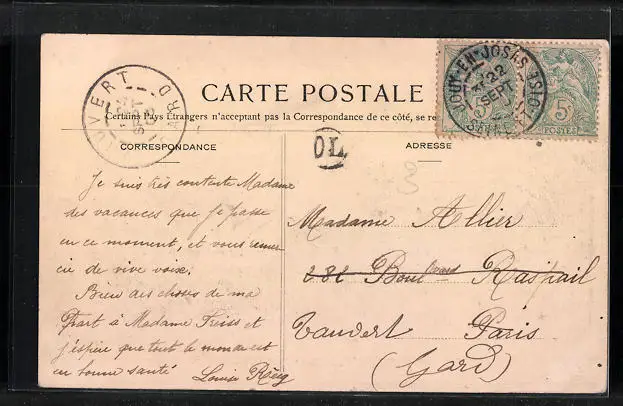 CARTE POSTALE
Certains Pays Etrangers n'acceptant pas la Correspondance de ce côté, se re
CORRESPONDANCE
ADRESSE
OL
JOUY-EN-JOSAS
22
SEPT
SEINE-ET-OISE
5c
POSTES
VAUVERT
GARD
Je suis très contente Madame
des vacances que je passe
en ce moment, et vous remer
cie de vive voix.
Bien des choses de ma
part à Madame et
j'espère que tout le monde est
en bonne santé
Louise
Madame Allier
282 Boulevard Raspail
Vauvert Paris
(Gard)